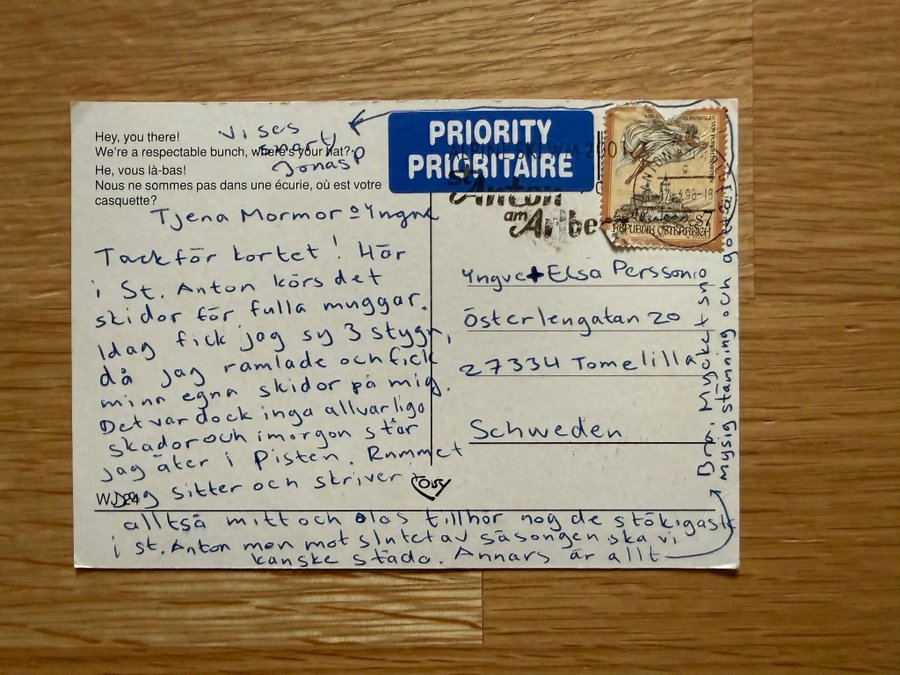 Hey, you there!
We're a respectable bunch, where's your hat?
He, vous là-bas!
Nous ne sommes pas dans une écurie, où est votre
casquette?
Tjena Mormor o Yngve
Tack för kortet! Här
i St. Anton körs det
skidor för fulla muggar.
Idag fick jag sy 3 stygn,
då jag ramlade och fick
mina egna skidor på mig.
Det var dock inga allvarliga
skador och imorgon står
jag åter i Pisten. Rummet
jag sitter och skriver i
WJ 24
alltså mitt och Olas tillhör nog de stökigaste
i St. Anton men mot slutet av säsongen ska vi
kanske städa. Annars är allt
Bra. Mycket snö
Mysig stämning och
Vises
snart
Jonas P
PRIORITY
PRIORITAIRE
ALPINE SKI WM 2001
St. Anton
am
Arlberg
98-18
S7
REPUBLIK ÖSTERREICH
Yngve + Elsa Persson
Österlengatan 20
27334 Tomelilla
Schweden